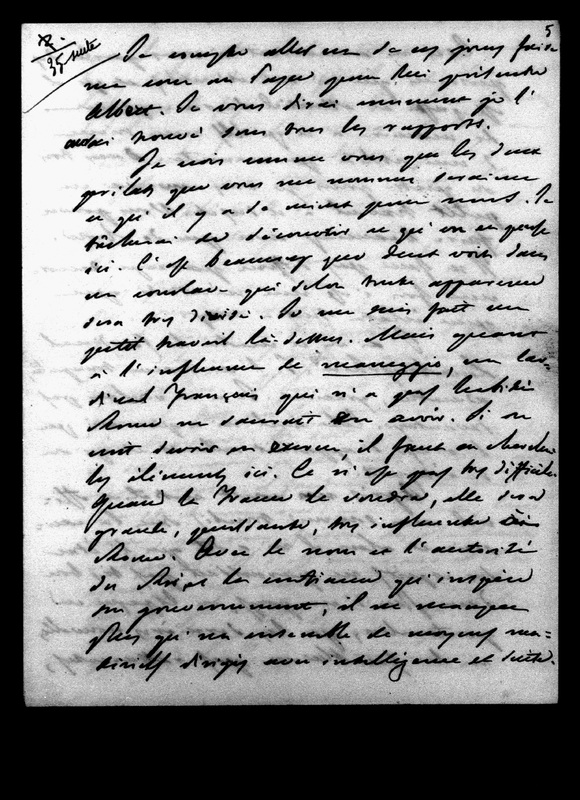 5
35 suite
Je compte aller un de ces jours faire
ma cour au Pape pour lui présenter
Albert. Je vous dirai comment je l'
aurai trouvé sous tous les rapports.
Je crois comme vous que les deux
prélats que vous me nommez seraient
ce qu'il y a de mieux pour nous. Je
tâcherai de découvrir ce qu'on en pense
ici. C'est beaucoup que deux voix dans
un conclave qui selon toute apparence
sera très divisé. Je me suis fait un
petit travail là-dessus. Mais quant
à l'influence de maneggio, un Car-
dinal français qui n'a pas habité
Rome ne saurait en avoir. Si on
veut avoir en exercer, il faut en chercher
les éléments ici. Ce n'est pas très difficile.
Quand la France le voudra, elle sera
grande, puissante, très influente à
Rome. Avec le nom et l'autorité
du Roi et la confiance qu'inspire
son gouvernement, il ne manque
plus qu'un ensemble de moyens ma-
tériels dirigés avec intelligence et suite.